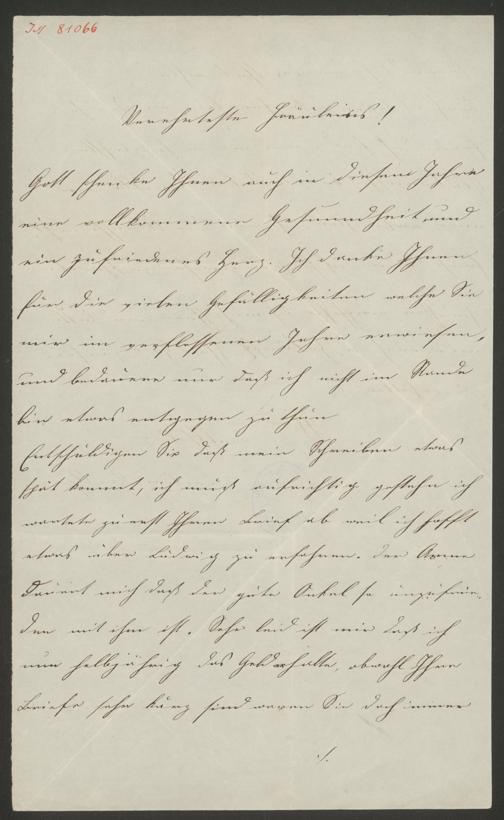 IN 81066
Verehrteste Fräulein!
Gott schenke Ihnen auch in diesem Jahre
eine vollkommene Gesundheit und
ein zufriedenes Herz. Ich danke Ihnen
für die vielen Gefälligkeiten welche Sie
mir im verflossenen Jahre erwiesen,
und bedauere nur daß ich nicht im Stande
bin etwas entgegen zu thun
Entschuldigen Sie daß mein Schreiben etwas
spät kommt, ich muß aufrichtig gestehn ich
wartete zuerst Ihren Brief ab weil ich hofft
etwas über Ludwig zu erfahren. Der Arme
dauert mich daß der gute Onkel so unzufrie-
den mit ihm ist. Sehr leid ist mir daß ich
nun halbjährig das Geld erhalte, obwohl Ihre
Briefe sehr kurz sind waren Sie doch immer
./.